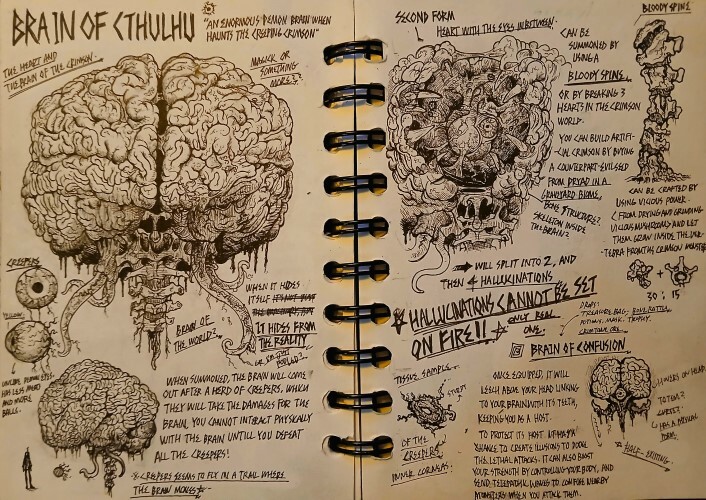 BRAIN OF CTHULHU
"AN ENORMOUS DEMON BRAIN WHEN
HAUNTS THE CREEPING CRIMSON"
THE HEART AND
THE BRAIN OF THE CRIMSON
MAGICK OR
SOMETHING
MORE?
CREEPERS
WHEN IT HIDES
ITSELF
IT HIDES FROM
THE REALITY
BRAIN OF
THE WORLD?
HAS LESS
AND MORE
BALLS.
WHEN SUMMONED, THE BRAIN WILL COME
OUT AFTER A HERD OF CREEPERS, WHICH
THEY WILL TAKE THE DAMAGES FOR THE
BRAIN, YOU CANNOT INTERACT PHYSICALLY
WITH THE BRAIN UNTILL YOU DEFEAT
ALL THE CREEPERS!
CREEPERS SEEMS TO FLY IN A TRAIL WHERE
THE BRAIN MOVES
SECOND FORM
HEART WITH THE EYES IN BETWEEN.
CAN BE
SUMMONED BY
USING A
BLOODY SPINE,
OR BY BREAKING 3
HEARTS IN THE CRIMSON
WORLD.
YOU CAN BUILD ARTIFI-
CIAL CRIMSON BY BUYING
A COUNTERPART EVIL SEED
FROM DRYAD IN A
GRAVEYARD BIOME,
BONE STRUCTURE?
SKELETON INSIDE
THE BRAIN?
WILL SPLIT INTO 2, AND
THEN 4 HALLUCINATIONS
HALLUCINATIONS CANNOT BE SET
ON FIRE!!
ONLY REAL
ONE.
BLOODY SPINE
CAN BE CRAFTED BY
USING VICIOUS POWER.
(FROM DRYING AND GRINDING
VICIOUS MUSHROOM) AND LET
THEM GRAW INSIDE THE
30 : 15
DROPS:
TREASURE BAG, BONE RATTLE,
POTIONS, MASK, TROPHY,
CRIMTANE ORE.
TISSUE SAMPLE
OF THE
CREEPERS
INNER CORNEAS!
BRAIN OF CONFUSION
ONCE EQUIPPED, IT WILL
LEECH ABOVE YOUR HEAD LINKING
TO YOUR BRAIN WITH ITS TEETH,
KEEPING YOU AS A HOST.
TO PROTECT ITS HOST
CHANCE TO CREATE ILLUSIONS TO DODGE
THE LETHAL ATTACKS. IT CAN ALSO BOOST
YOUR STRENGTH BY CONTROLLING YOUR BODY, AND
SEND TELEPATHIC WAVES TO CONFUSE NEARBY
MONSTERS WHEN YOU ATTACK THEM.
TOTEM?
CURSE?